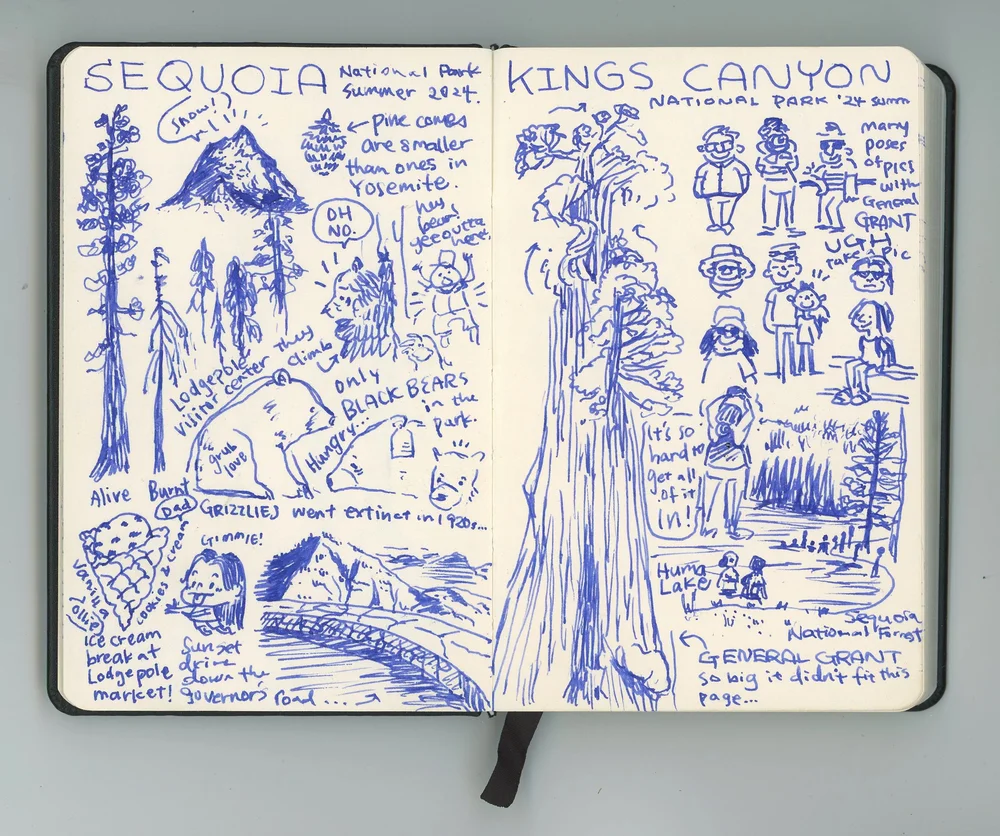 SEQUOIA
National Park
Summer 2024.
Snow!
← pine cones
are smaller
than ones in
Yosemite.
OH
NO.
hey
bear,
outta
here.
Alive
Burnt
Lodgepole
visitor center
they
climb
only
BLACK BEARS
in the
park.
grub
love
Hungry...
GRIZZLIES went extinct in 1920s...
Dad
vanilla
cookies & cream
GIMMIE!
Ice cream
break at
Lodgepole
market!
Sunset
drive
down the
governors road ... →
KINGS CANYON
NATIONAL PARK '24 summ
many
poses
of
pics
with
General
GRANT
UGH
take pic
it's so
hard to
get all
of it
in!
Hume
Lake
Sequoia
National Forest
GENERAL GRANT
so big it didn't fit this
page...